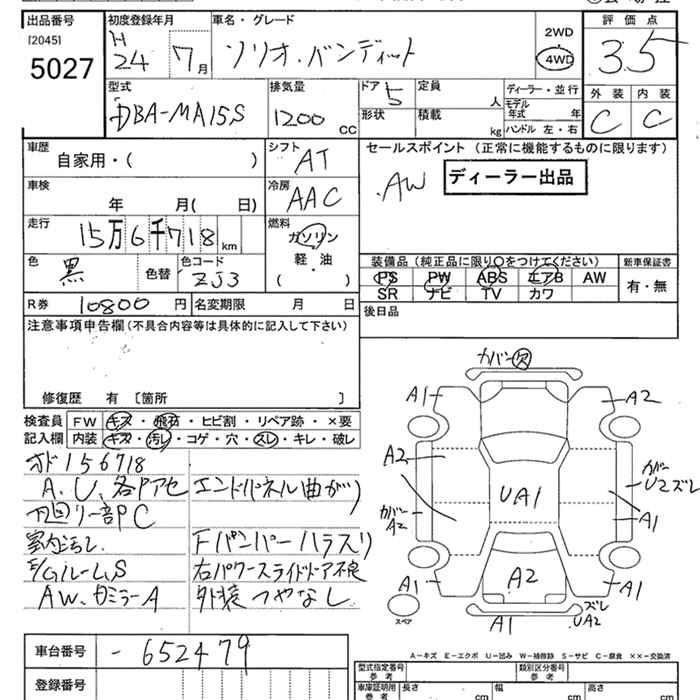 出品番号
[2045]
5027
初度登録年月
H
24 7月
車名・グレード
ソリオ・バンディット
2WD
4WD
評価点
3.5
型式
DBA-MA15S
排気量
1200 CC
ドア 5
定員 人
形状
積載 kg
ディーラー・並行
モデル年式 年
ハンドル 左・右
外装 内装
C C
車歴
自家用・( )
シフト
AT
セールスポイント(正常に機能するものに限ります)
AW
ディーラー出品
車検
年 月( 日)
冷房
AAC
走行
15万6千718km
燃料
ガソリン
軽・油
( )
色
黒
色替
色コード
ZJ3
装備品(純正品に限り○をつけてください)
PS PW ABS エアB AW
SR ナビ TV カワ
新車保証書
有・無
R券 10800円
名変期限 月 日
後日品
注意事項申告欄(不具合内容等は具体的に記入して下さい)
修復歴 有〔箇所 〕
検査員記入欄
FW キズ・飛石・ヒビ割・リペア跡・×要
内装 キズ・汚レ・コゲ・穴・スレ・キレ・破レ
オド156718
A、U、各Pアセ
リ一部PC
室内汚レ
E/GルームS
AW、カミラーA
エンドパネル曲がり
Fバンパーハラスリ
右パワースライドドア不良
外装つやなし
カバー欠
A1 A2
A2
カバーA2
UA1
カバーU2ズレ
A1
A1 A2 A1
スペア
A1
ズレ
UA2
A-キズ E-エクボ U-凹み W-補修跡 S-サビ C-腐食 ××-交換済
車台番号
-652479
登録番号
型式指定番号
参考
類別区分番号
参考
車庫証明用
参考
長さ cm
幅 cm
高さ cm